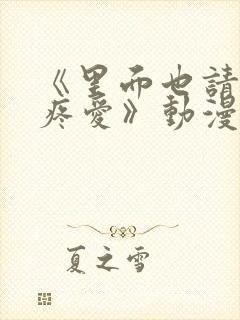 《里面也請
疼愛》動漫
夏之雪